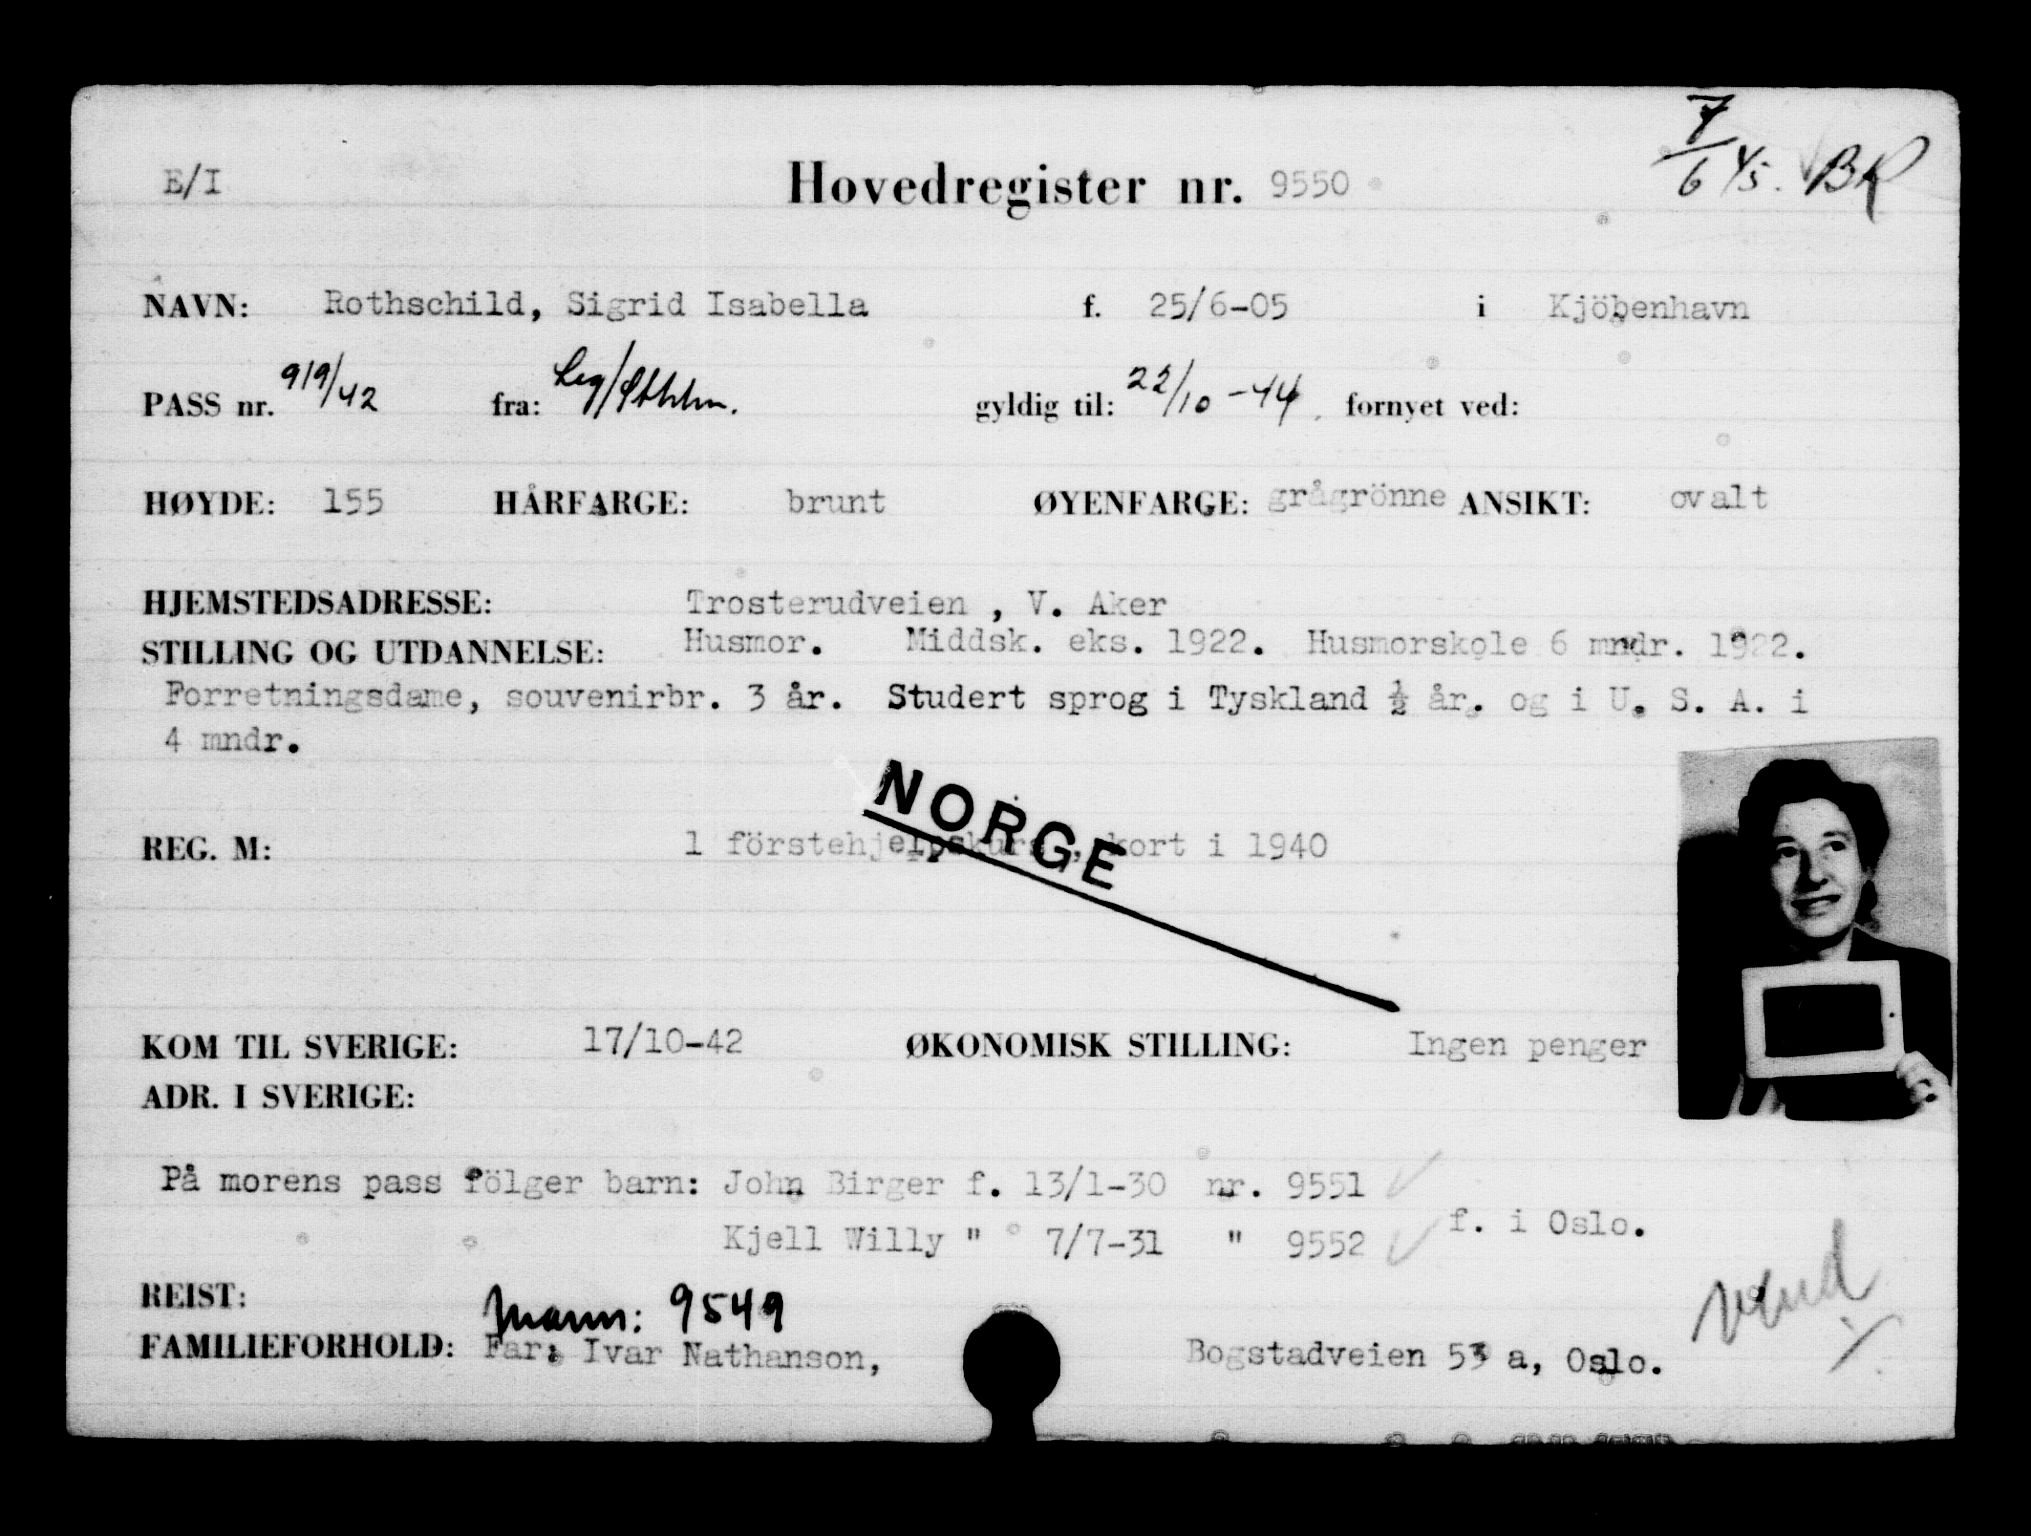 E/I Hovedregister nr. 9550 7/6 45. BR
NAVN: Rothschild, Sigrid Isabella f. 25/6-05 i Kjöbenhavn
PASS nr. 919/42 fra: Leg/Sthlm. gyldig til: 22/10-44. fornyet ved:
HØYDE: 155 HÅRFARGE: brunt ØYENFARGE: grågrönne ANSIKT: ovalt
HJEMSTEDSADRESSE: Trosterudveien , V. Aker
STILLING OG UTDANNELSE: Husmor. Middsk. eks. 1922. Husmorskole 6 mndr. 1922.
Forretningsdame, souvenirbr. 3 år. Studert sprog i Tyskland ½ år. og i U. S. A. i
4 mndr.
NORGE
REG. M: 1 förstehjelpskurs, kort i 1940
KOM TIL SVERIGE: 17/10-42 ØKONOMISK STILLING: Ingen penger
ADR. I SVERIGE:
På morens pass fölger barn: John Birger f. 13/1-30 nr. 9551
Kjell Willy " 7/7-31 " 9552 f. i Oslo.
REIST: Mann: 9549 vend
FAMILIEFORHOLD: Far: Ivar Nathanson, Bogstadveien 53 a, Oslo.